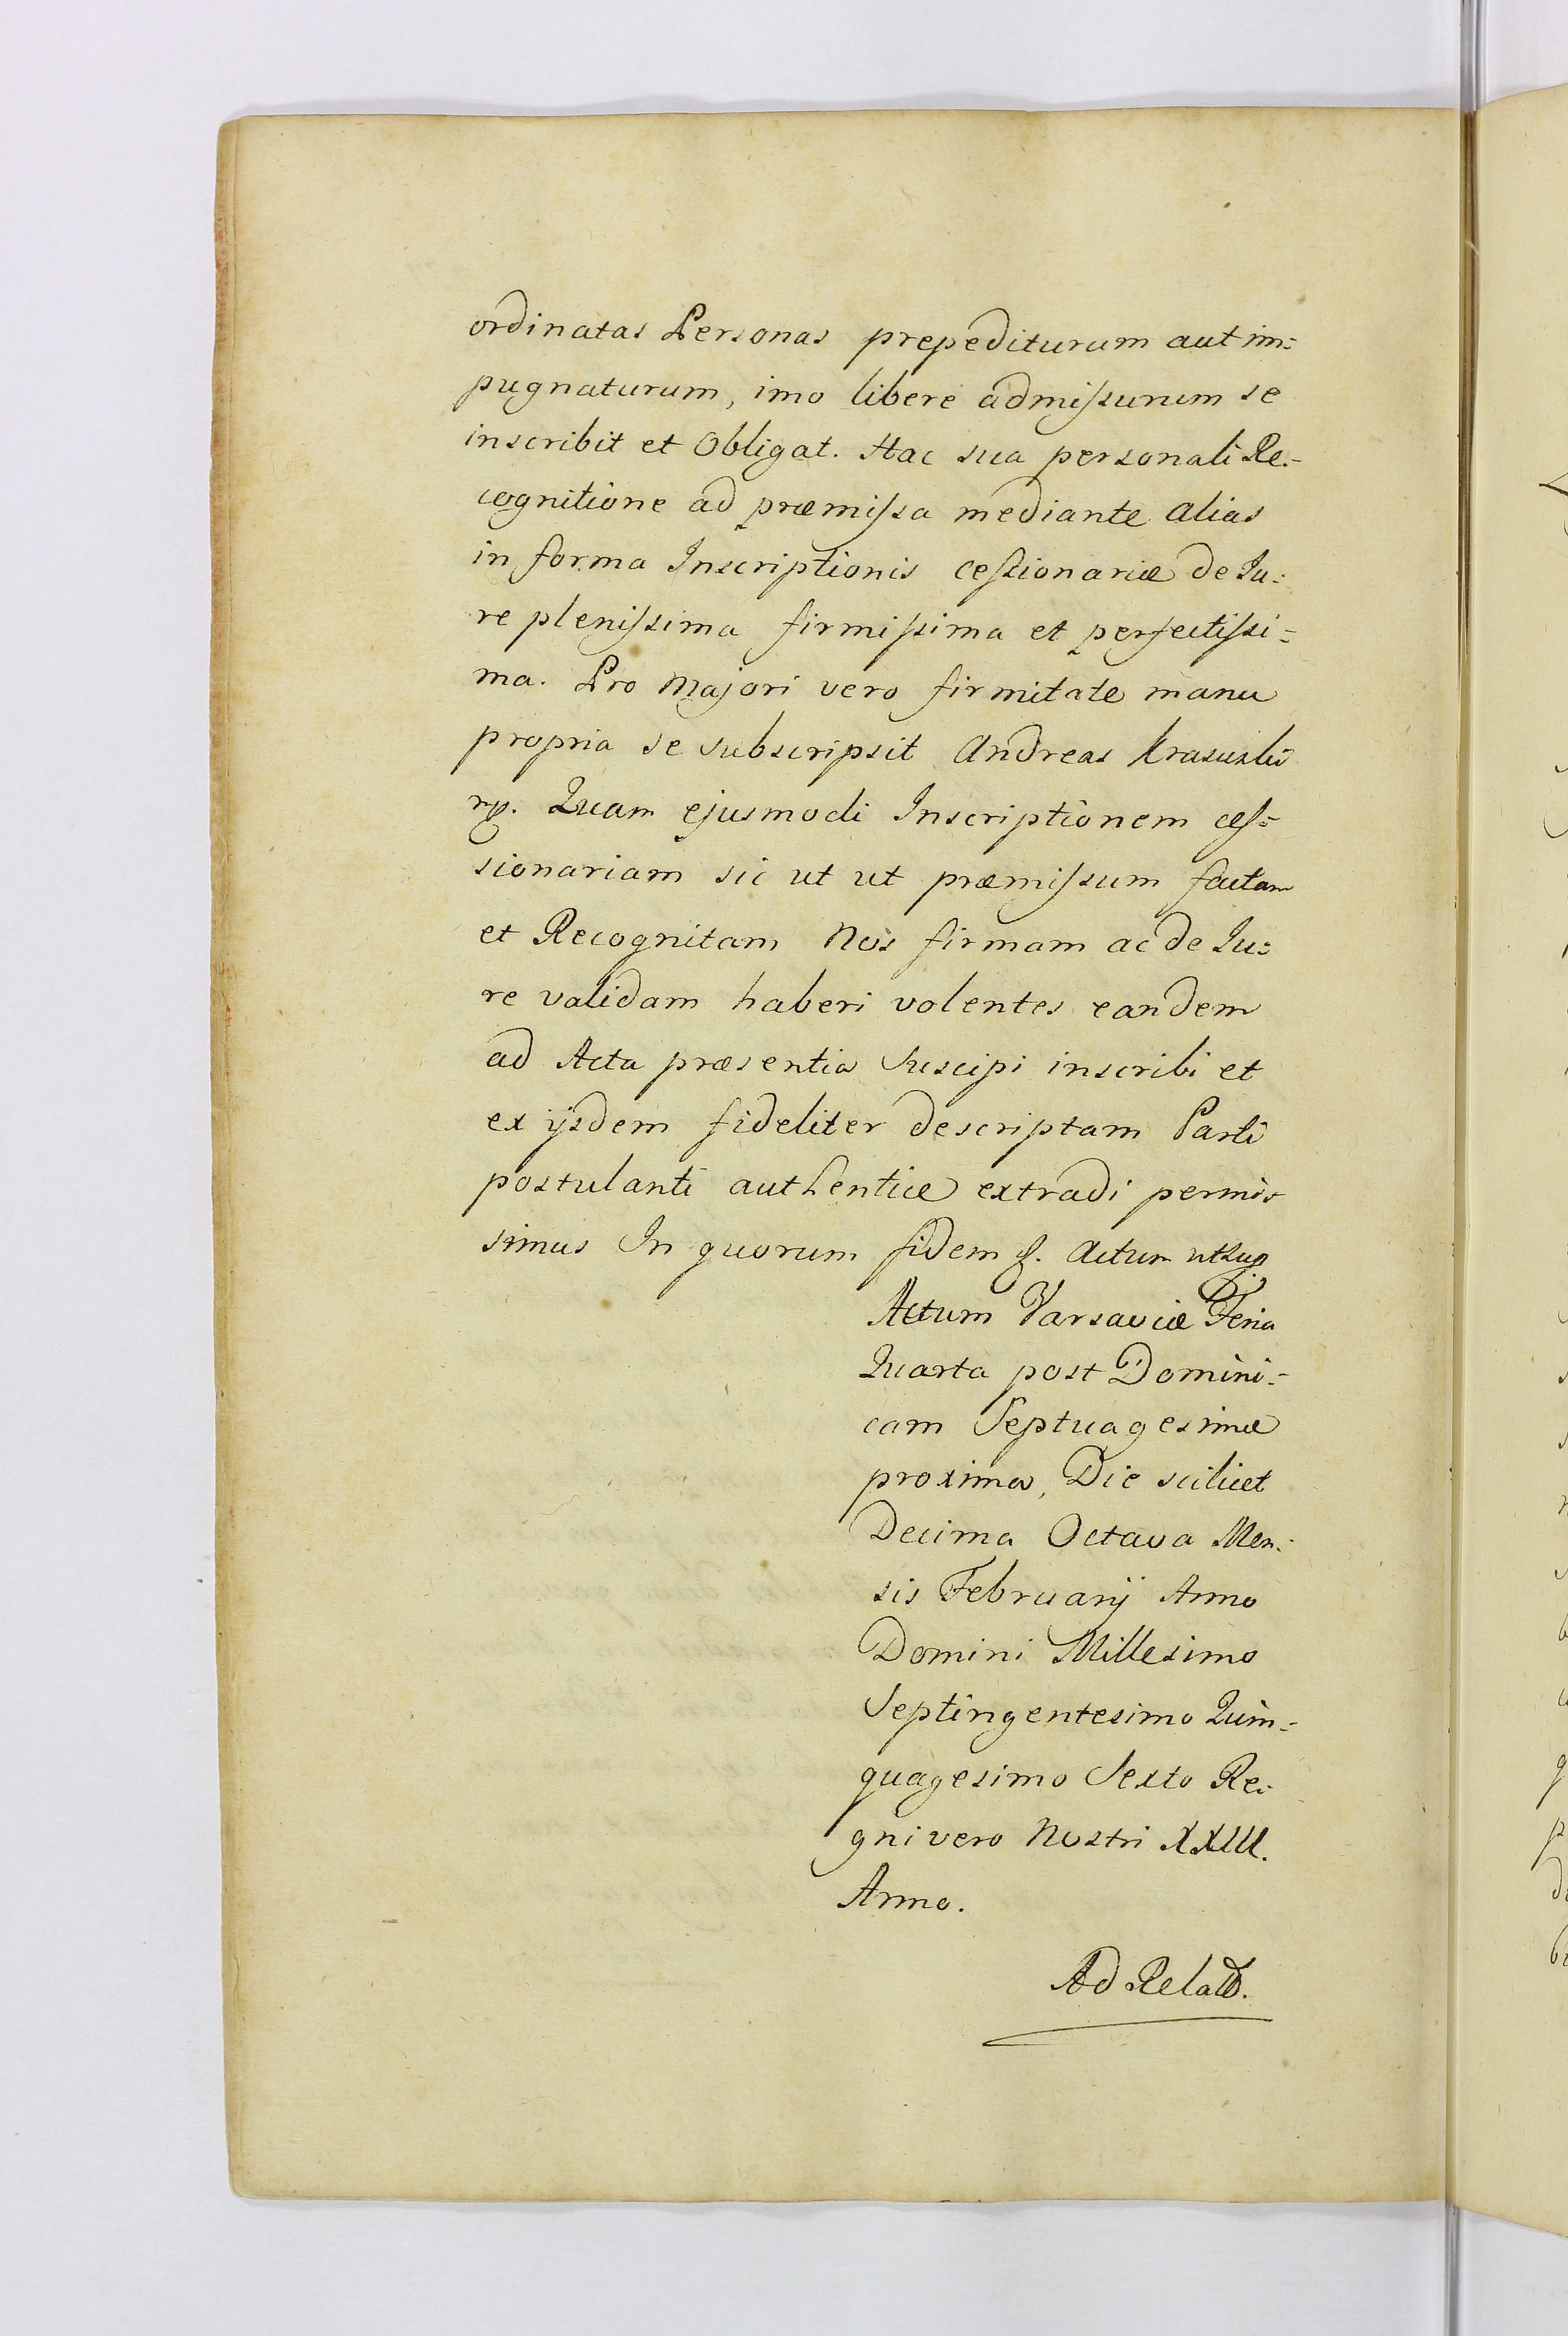 ordinatas Personas prepediturum aut im=
pugnaturum, imo libere admiſsurum se
inscribit et Obligat. Hac sua personali Re=
cognitione ad præmiſsa mediante alias
in forma Inscriptionis ceſsionariæ de Ju=
re pleniſsima firmiſsima et perfectiſsi=
ma. Pro Majori vero firmitate manu
propria se subscripsit Andreas Krasuski
mp. Quam ejusmodi Inscriptionem ceſ=
sionariam sic ut ut præmiſsum factam
et Recognitam Nos firmam ac de Ju=
re validam haberi volentes eandem
ad Acta præsentia Suscipi inscribi et
ex ijsdem fideliter descriptam Parti
postulanti authentice extradi permis
simus In quorum fidem &. Actum ut sup
Actum Varsaviæ Feria
Quarta post Domini=
cam Septuagesimæ
proxima, Die scilicet
Decima Octava Men=
sis Februarij Anno
Domini Millesimo
Septingentesimo Quin=
quagesimo Sexto Re=
gni vero Nostri XXIII.
Anno.
Ad Relað.